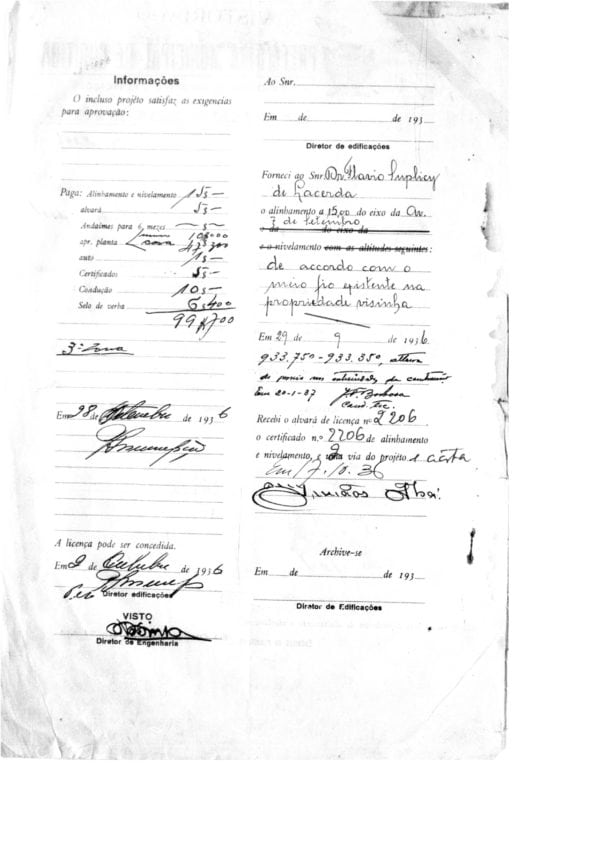 Informações
O incluso projéto satisfaz as exigencias
para aprovação:
Paga: Alinhamento e nivelamento 15$—
alvará 5$—
Andaimes para 6 mezes — $ —
apr. planta
auto 1$—
Certificados 5$—
Condução 10$—
Selo de verba 6$400
99$700
3ª zona
Em 28 de Setembro de 1936
A licença pode ser concedida.
Em 2 de Outubro de 1936
Diretor edificações
VISTO
Diretor de Engenharia
Ao Snr.
Em de de 193
Diretor de edificações
Forneci ao Snr. Dr. Flavio Suplicy
de Lacerda
o alinhamento a 15,00 do eixo da Av.
7 de Setembro
o da do eixo da
e o nivelamento com as altitudes seguintes:
de accordo com o
meio fio existente na
propriedade visinha
Em 29 de 9 de 1936
933.750 - 933.850, altura
Em 20-1-37
Recebi o alvará de licença nº 2206
o certificado n.º 2206 de alinhamento
e nivelamento, e via do projeto e
Em 17.10.36
Archive-se
Em de de 193
Diretor de Edificações